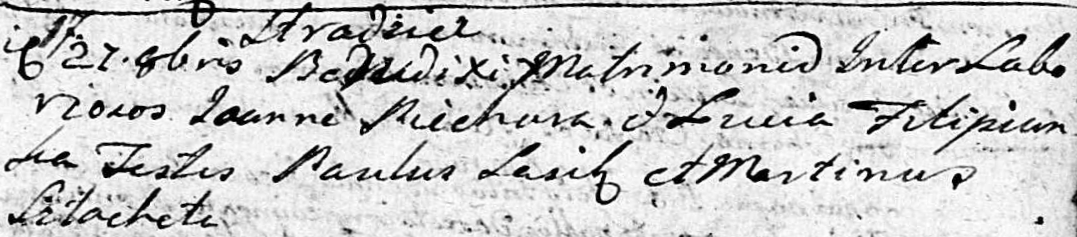 Stradzice
27. 8bris Benedixi Matrimoniũ Inter Labo
riosos Joannẽ et Lucia Filipiun
ka Testes Paulus Lasik et Martinus